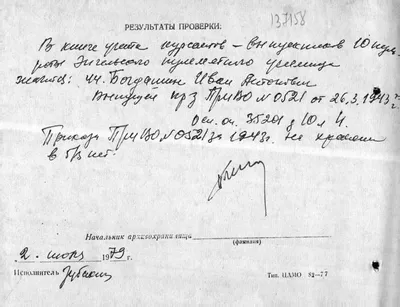 137158
РЕЗУЛЬТАТЫ ПРОВЕРКИ:
В книге учета курсантов – выпускников 10 пулем.
роты Энгельского пулеметного училища
значится: ч.ч. Богдашин Иван Антонович
Выпущен пр-з ПриВО №0521 от 26.3.1943 г.
Оп. 35201 д 10 л 4.
Приказа ПриВО №0521 за 1943г. на хранении
в нет.
Начальник архивохранилища
(фамилия)
2 1979 г.
Исполнитель
Тип. ЦАМО 82-77